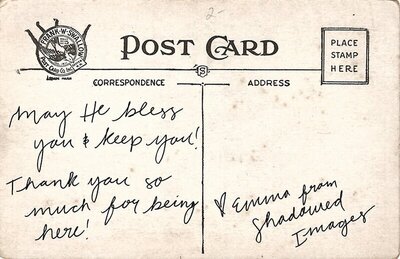 2-
FRANK·W·SWALLOW
POST CARD
PLACE
STAMP
HERE
CORRESPONDENCE
ADDRESS
May He bless
you & keep you!
Thank you so
much for being
here!
♡ Emma from
Shadowed
Images